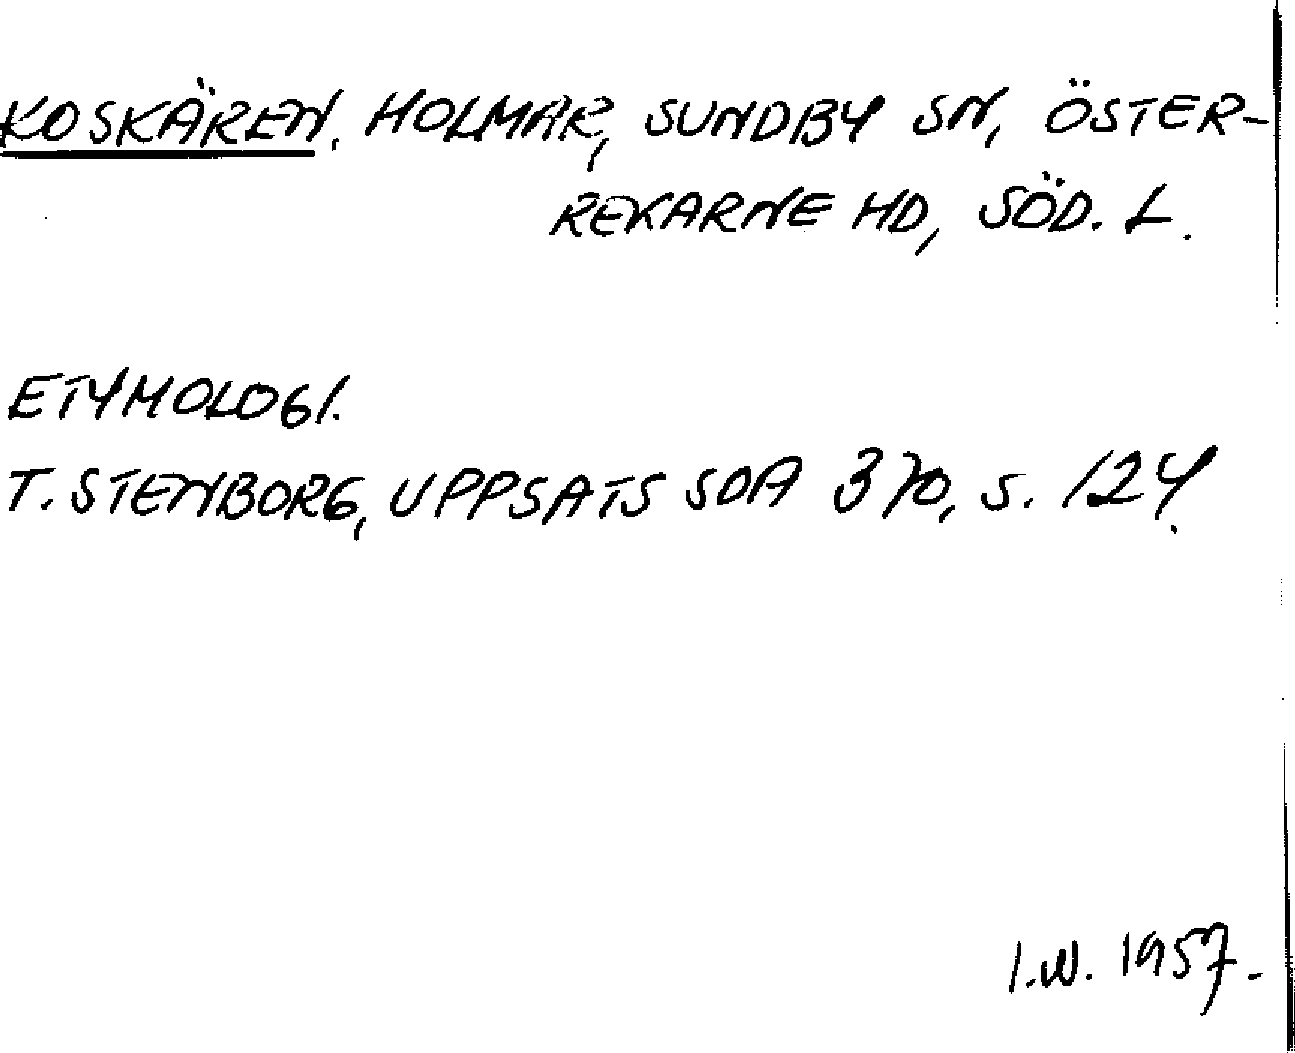 KOSKÄREN. HOLMAR, SUNDBY SN, ÖSTER-
REKARNE HD, SÖD. L.
ETYMOLOGI.
T. STENBORG, UPPSATS SOA 370, S. 124.
I.W. 1957.